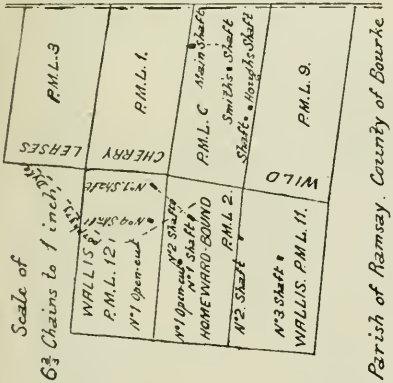 Scale of
6⅔ Chains to 1 inch,
P.M.L.3
LEASES
P.M.L.1.
CHERRY
P.M.L. C
Main Shaft
Smiths Shaft
Houghs Shaft
Shaft
P.M.L.9.
WILD
Dyke
WALLIS
P.M.L.12
Nº1 Open-cut
Nº4 Shaft
Nº1 Shaft
Nº1 Open-cut
Nº2 Shaft
Nº1 Shaft
HOMEWARD-BOUND
P.M.L 2.
Nº2. Shaft
Nº3 Shaft
WALLIS. P.M.L.11.
Parish of Ramsay. County of Bourke